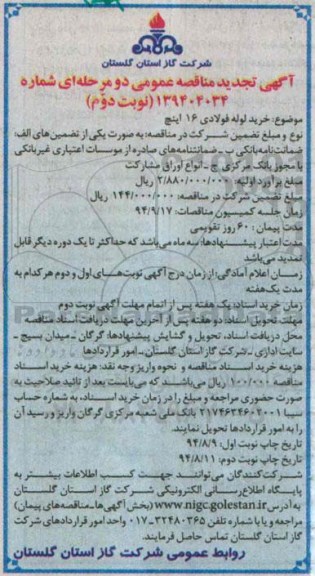 شرکت گاز استان گلستان
آگهی تجدید مناقصه عمومی دو مرحله‌ای شماره
۱۳۹۴۰۴۰۳۴ (نوبت دوم)
موضوع: خرید لوله فولادی ۱۶ اینچ
نوع و مبلغ تضمین شرکت در مناقصه: به صورت یکی از تضمین های الف:
ضمانت نامه بانکی ب - ضمانتنامه های صادره از موسسات اعتباری غیر بانکی
با مجوز بانک مرکزی ج - انواع اوراق مشارکت
مبلغ برآورد اولیه: ۲/۸۸۰/۰۰۰/۰۰۰ ریال
مبلغ تضمین شرکت در مناقصه: ۱۴۴/۰۰۰/۰۰۰ ریال
زمان جلسه کمیسیون مناقصات: ۹۴/۹/۱۷
مدت پیمان: ۶۰ روز تقویمی
مدت اعتبار پیشنهادها: سه ماه می باشد که حداکثر تا یک دوره دیگر قابل
تمدید می باشد
زمان اعلام آمادگی: از زمان درج آگهی نوبت های اول و دوم هر کدام به
مدت یک هفته
زمان خرید اسناد: یک هفته پس از اتمام مهلت آگهی نوبت دوم
مهلت تحویل اسناد: دو هفته پس از آخرین مهلت دریافت اسناد مناقصه
محل دریافت اسناد، تحویل و گشایش پیشنهادها: گرگان - میدان بسیج -
سایت اداری - شرکت گاز استان گلستان - امور قراردادها
هزینه خرید اسناد مناقصه و نحوه واریز وجه نقد: هزینه خرید اسناد
مناقصه ۱۰۰/۰۰۰ ریال می باشد که می بایست بعد از تائید صلاحیت به
صورت حضوری مراجعه و مبلغ را در زمان خرید اسناد، به شماره حساب
سیبا ۲۱۷۴۶۳۴۶۰۲۰۰۱ بانک ملی شعبه مرکزی گرگان واریز و رسید آن
را به امور قراردادها تحویل نمایند.
تاریخ چاپ نوبت اول: ۹۴/۸/۹
تاریخ چاپ نوبت دوم: ۹۴/۸/۱۱
شرکت کنندگان می توانند جهت کسب اطلاعات بیشتر به
پایگاه اطلاع رسانی الکترونیکی شرکت گاز استان گلستان
به آدرس www.nigc.golestan.ir (بخش آگهی ها - مناقصه های پیمان)
مراجعه و یا با شماره تلفن ۳۲۴۸۰۳۶۵-۰۱۷ واحد امور قراردادهای شرکت
گاز استان گلستان تماس حاصل فرمایند.
روابط عمومی شرکت گاز استان گلستان